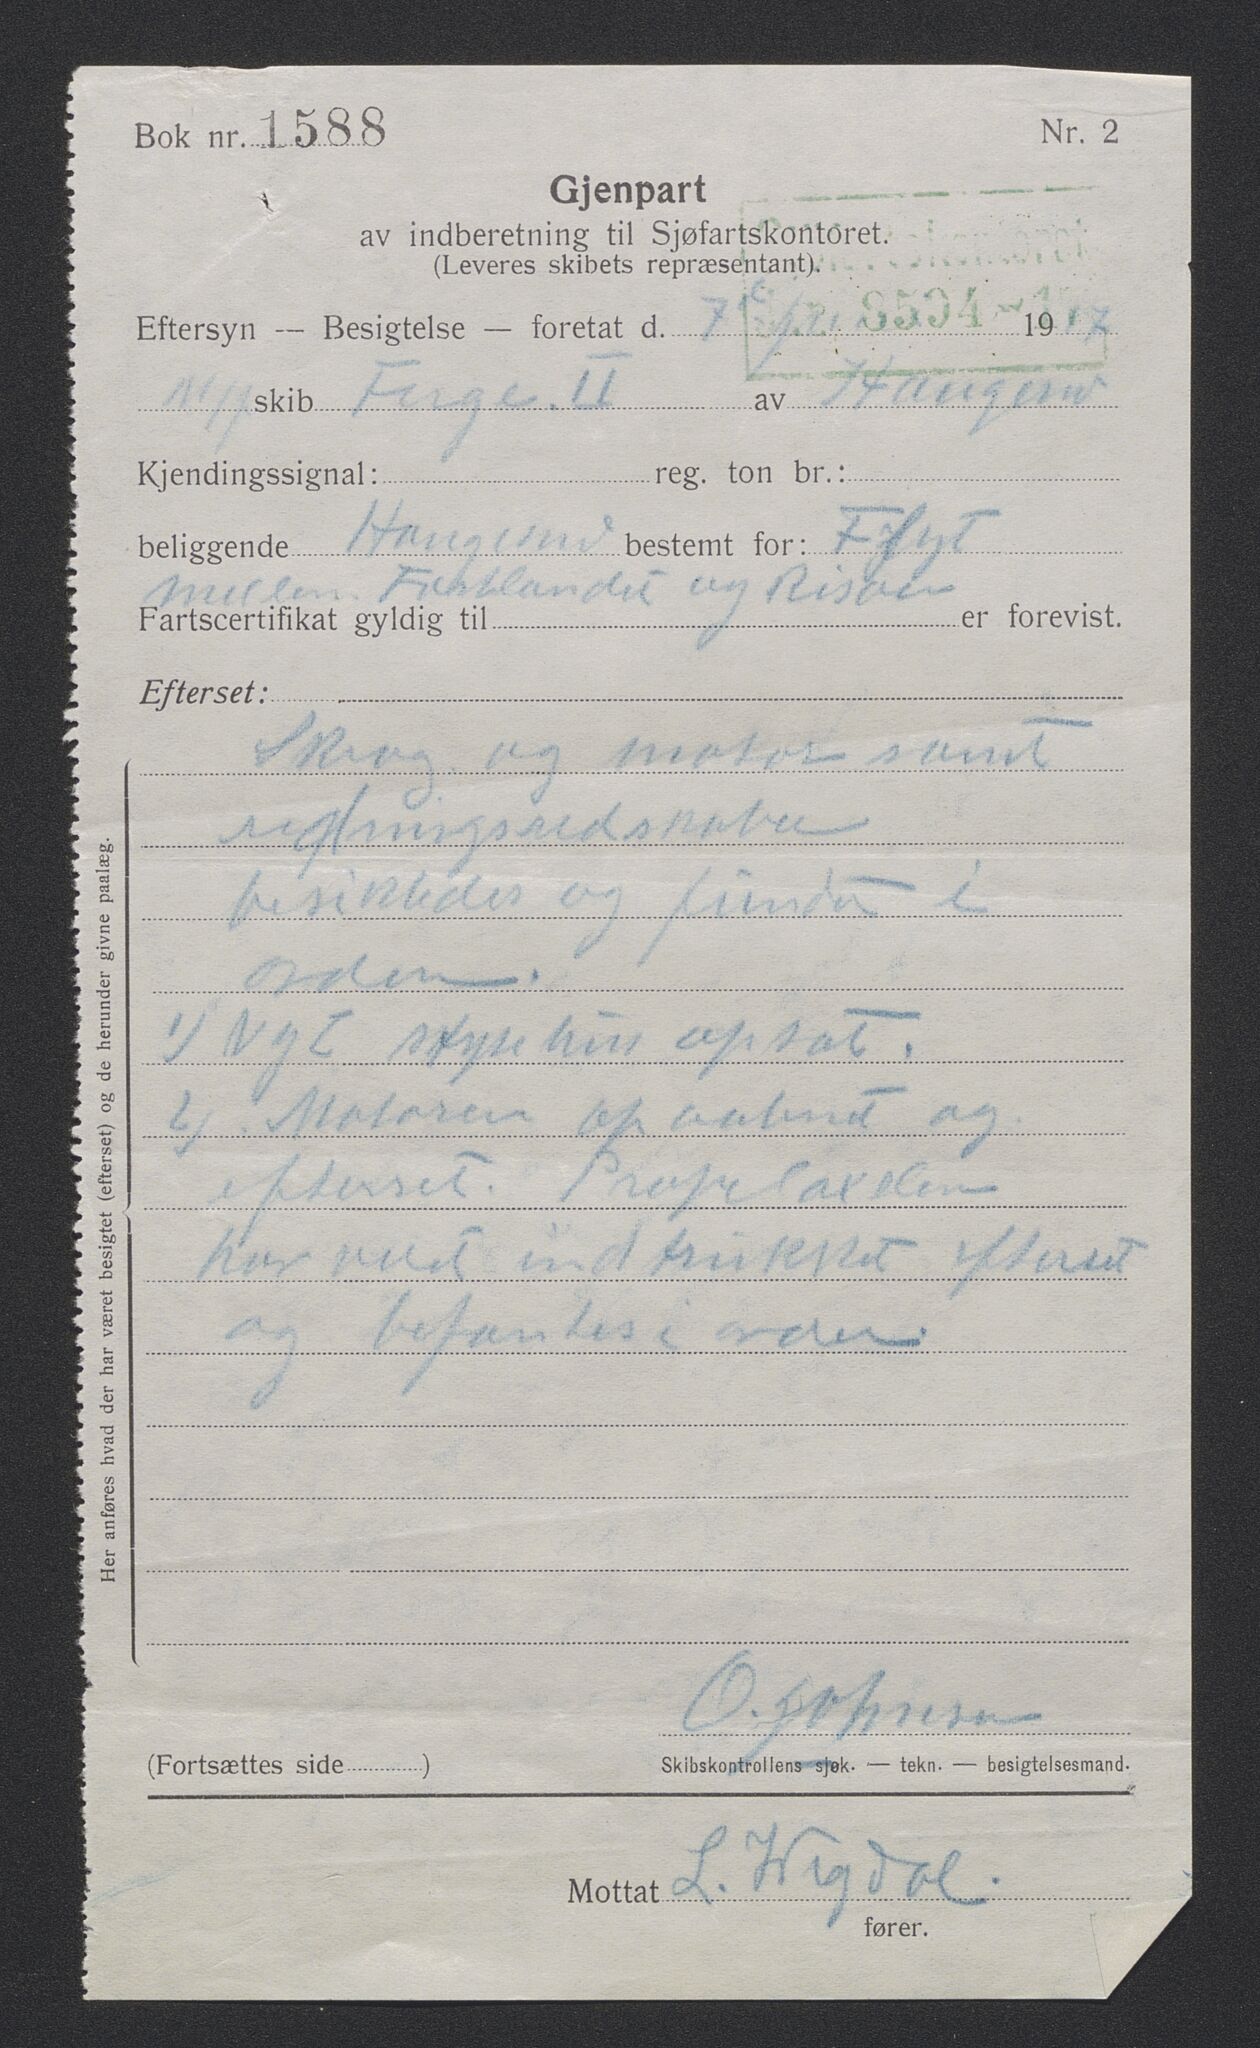 Bok nr. 1588 Nr. 2
Gjenpart
av indberetning til Sjøfartskontoret.
(Leveres skibets repræsentant).
Eftersyn — Besigtelse — foretat d. 7 1917
skib Ferge. II av Haugesund
Kjendingssignal: reg. ton br.:
beliggende Haugesund bestemt for:
mellem Fastlandet og Risøen
Fartscertifikat gyldig til er forevist.
Efterset:
Skrog og motor samt
redningsredskaber
besiktedes og fundet i
orden.
1) Nyt styrehus opsat.
2). Motoren op aabnet og
efterset. Propelaxelen
har vert indtrukket efterset
og befantes i orden.
Her anføres hvad der har været besigtet (efterset) og de herunder givne paalæg.
O. Johnsen
(Fortsættes side ) Skibskontrollens sjøk. — tekn. — besigtelsesmand.
Mottat L. Vigdal.
fører.